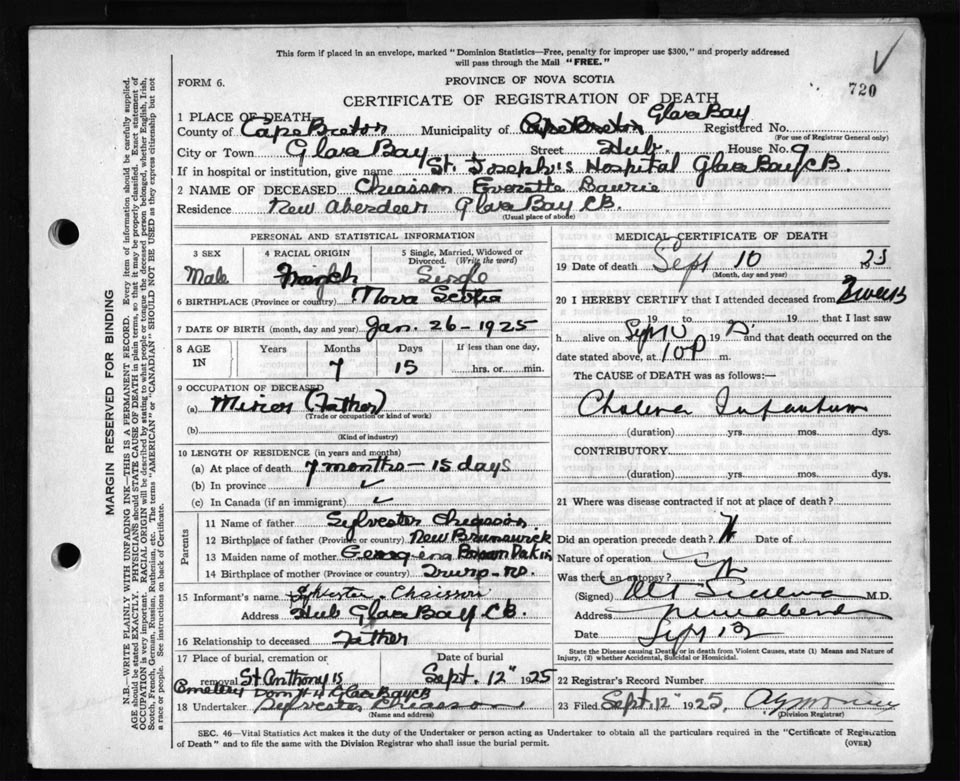 This form if placed in an envelope, marked "Dominion Statistics—Free, penalty for improper use $300," and properly addressed
will pass through the Mail "FREE."
FORM 6.
PROVINCE OF NOVA SCOTIA
720
CERTIFICATE OF REGISTRATION OF DEATH
1 PLACE OF DEATH
County of Cape Breton Municipality of Cape Breton Glace Bay Registered No.
(For use of Registrar General only)
City or Town Glace Bay Street Hub House No. 9
If in hospital or institution, give name St. Joseph's Hospital Glace Bay CB.
2 NAME OF DECEASED Chiasson Everette
Residence New Aberdeen Glace Bay CB.
(Usual place of abode)
PERSONAL AND STATISTICAL INFORMATION
3 SEX
Male
4 RACIAL ORIGIN
5 Single, Married, Widowed or Divorced. (Write the word)
Single
6 BIRTHPLACE (Province or country) Nova Scotia
7 DATE OF BIRTH (month, day and year) Jan. 26 - 1925
8 AGE IN
Years Months Days If less than one day,
7 15 hrs. or min.
9 OCCUPATION OF DECEASED
(a) Miner (Father)
(Trade or occupation or kind of work)
(b)
(Kind of industry)
10 LENGTH OF RESIDENCE (in years and months)
(a) At place of death 7 months - 15 days
(b) In province ✓
(c) In Canada (if an immigrant) ✓
Parents
11 Name of father Sylvester Chiasson
12 Birthplace of father (Province or country) New Brunswick
13 Maiden name of mother Georgina
14 Birthplace of mother (Province or country)
15 Informant's name Sylvester Chaisson
Address Hub Glace Bay CB.
16 Relationship to deceased Father
17 Place of burial, cremation or removal St Anthony's
Date of burial
Sept. 12" 1925
Cemetery Dom # 4 Glace Bay CB
18 Undertaker Sylvester Chiasson
(Name and address)
MEDICAL CERTIFICATE OF DEATH
19 Date of death Sept 10 25
(Month, day and year)
20 I HEREBY CERTIFY that I attended deceased from 2 weeks
19 to 19 that I last saw
h alive on Sept 10 19 25 and that death occurred on
date stated above, at 10 P m.
The CAUSE of DEATH was as follows:—
Cholera Infantum
(duration) yrs. mos. dys.
CONTRIBUTORY
(duration) yrs. mos. dys.
21 Where was disease contracted if not at place of death?
Did an operation precede death? Date of
Nature of operation
Was there an autopsy?
(Signed) M.D.
Address
Date Sept 12
State the Disease causing Death, or in death from Violent Causes, state (1) Means and Nature of
Injury, (2) whether Accidental, Suicidal or Homicidal.
22 Registrar's Record Number
23 Filed Sept. 12" 1925,
(Division Registrar)
SEC. 46—Vital Statistics Act makes it the duty of the Undertaker or person acting as Undertaker to obtain all the particulars required in the "Certificate of Registration
of Death" and to file the same with the Division Registrar who shall issue the burial permit.
(OVER)
MARGIN RESERVED FOR BINDING
N.B.—WRITE PLAINLY WITH UNFADING INK—THIS IS A PERMANENT RECORD. Every item of information should be carefully supplied.
AGE should be stated EXACTLY. PHYSICIANS should STATE CAUSE OF DEATH in plain terms, so that it may be properly classified. Exact statement of
OCCUPATION is very important. RACIAL ORIGIN will be described by stating to what people or tongue the deceased person belonged, whether English, Irish,
Scotch, French, German, Russian, Ruthenian, etc. The terms "AMERICAN" or "CANADIAN" SHOULD NOT BE USED as they express citizenship but not
a race or people. See instructions on back of Certificate.